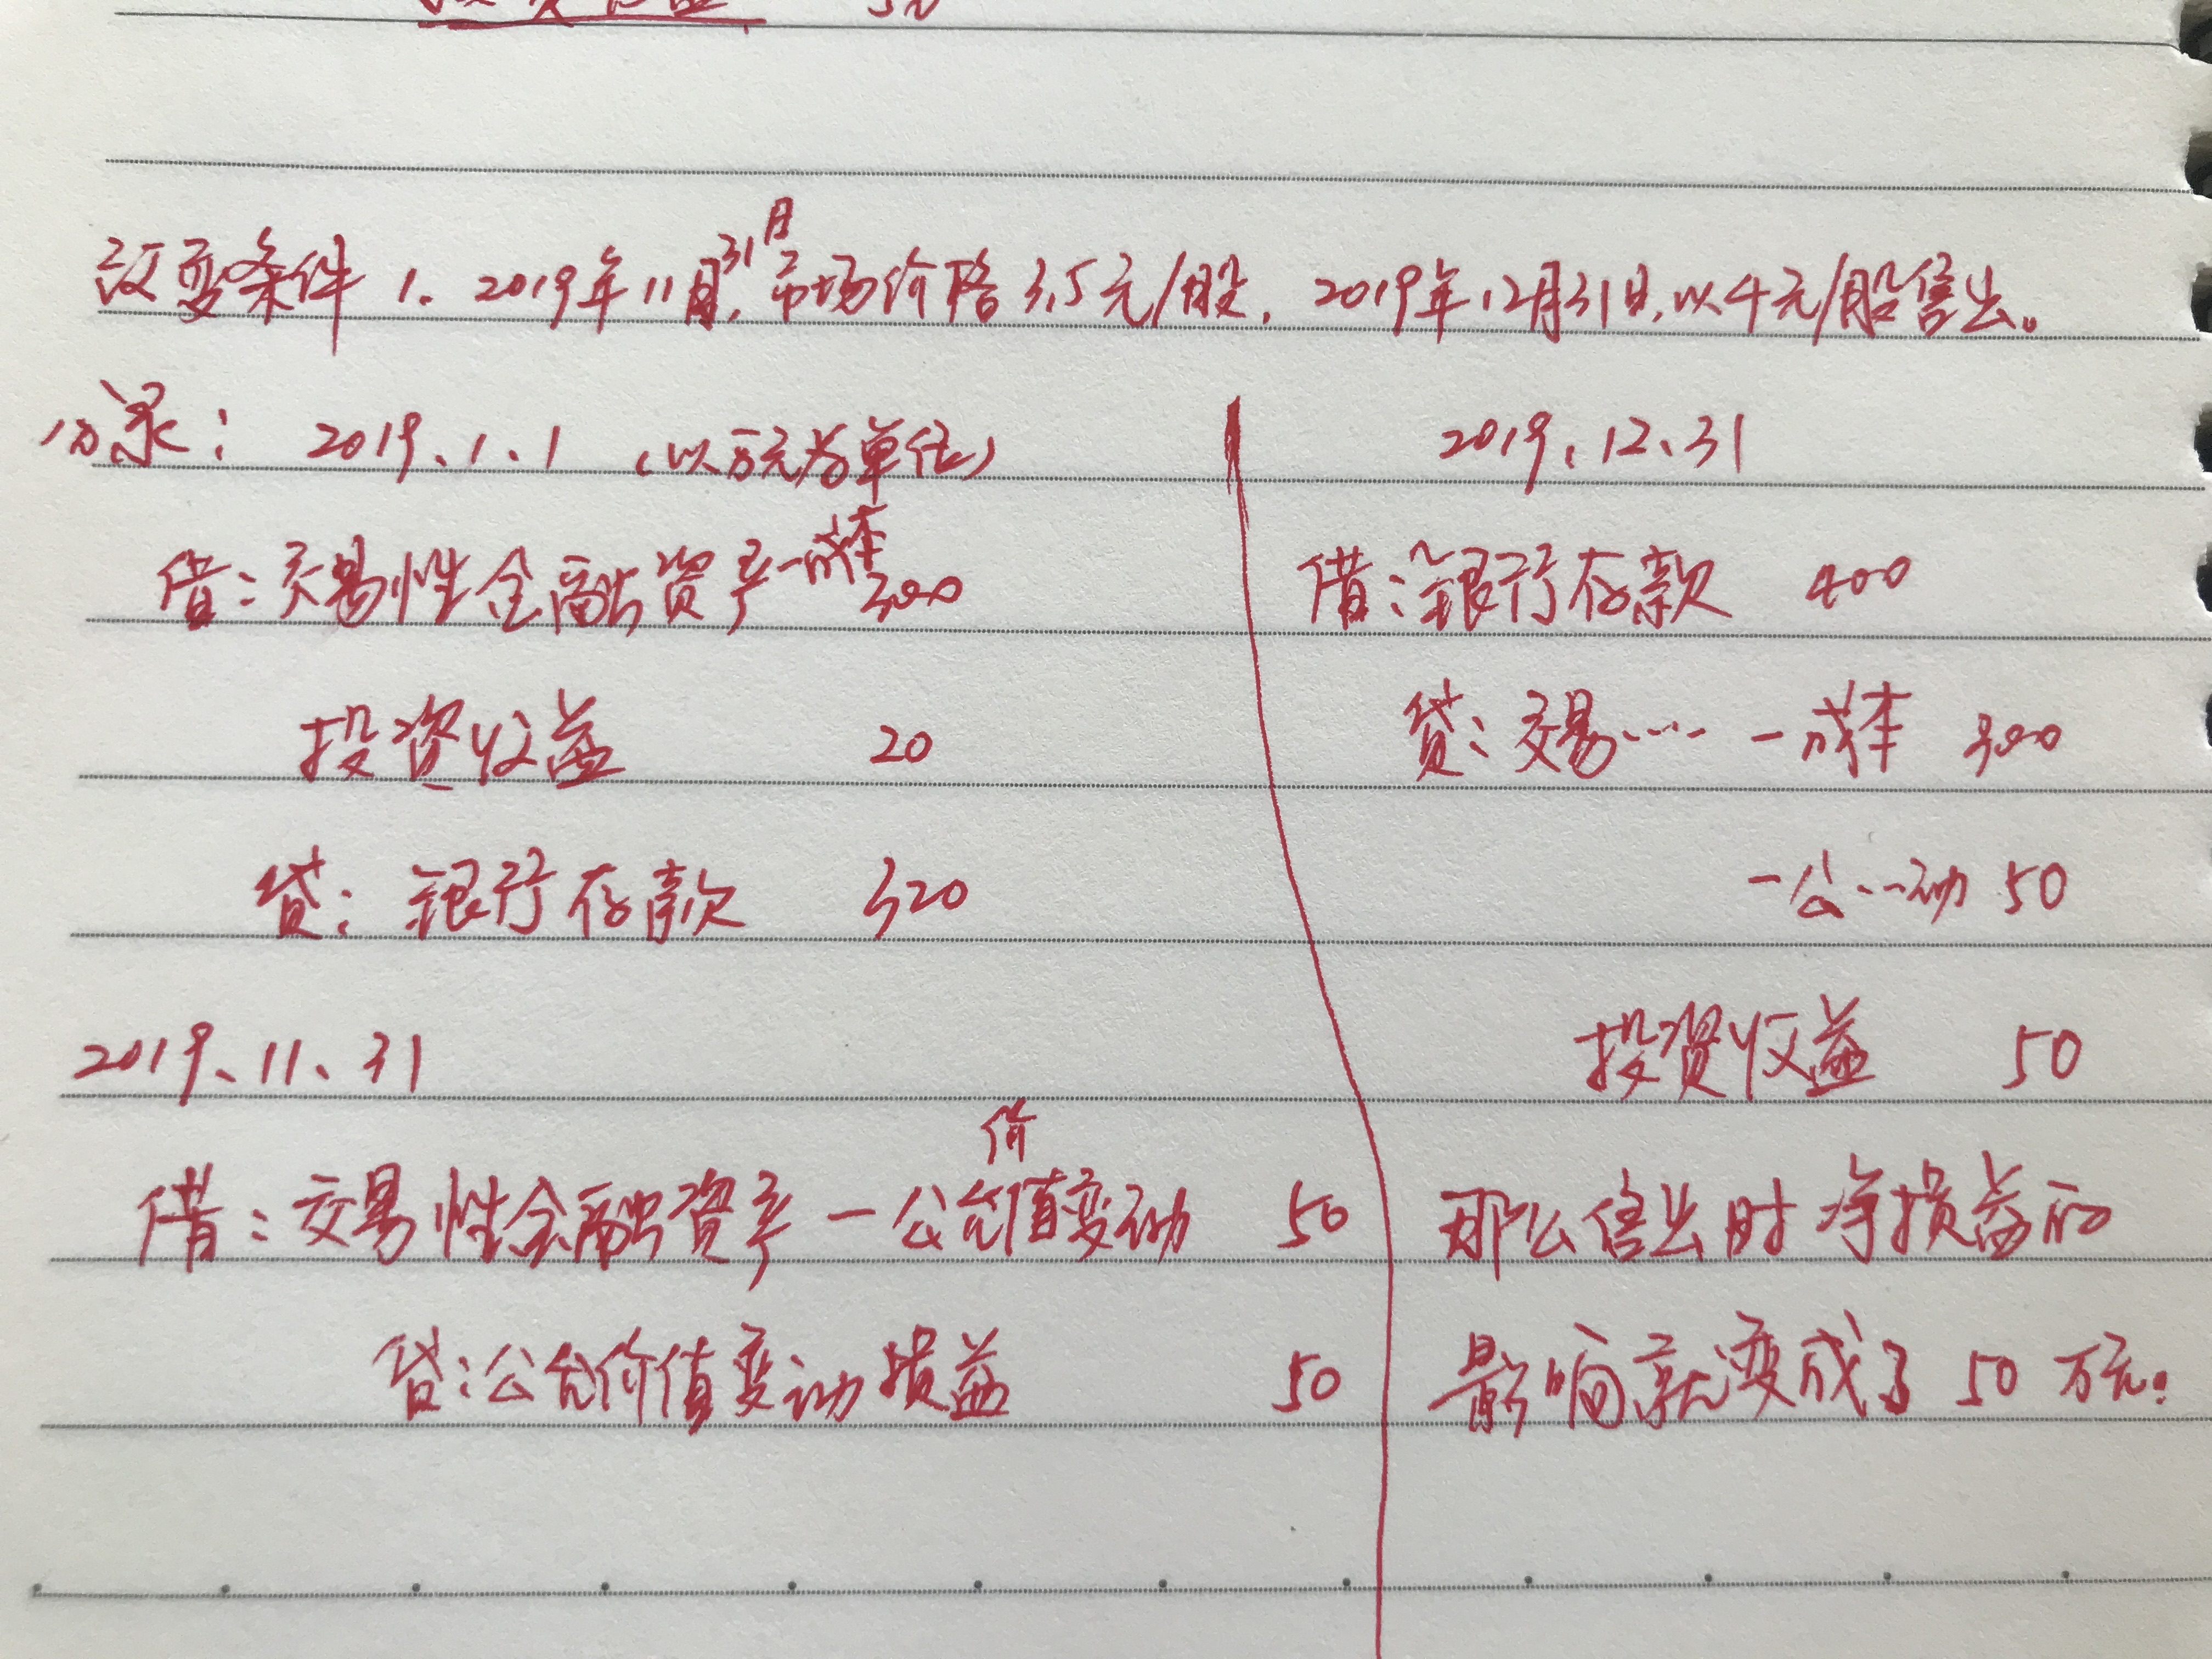 改变条件 1. 2019年11月31日, 市场价格3.5元/股, 2019年12月31日,以4元/股售出。
分录: 2019、1、1 (以万元为单位)
借:交易性金融资产-成本 300
投资收益 20
贷: 银行存款 320
2019、11、31
借:交易性金融资产-公允价值变动 50
贷:公允价值变动损益 50
2019、12、31
借:银行存款 400
贷:交易…-成本 300
-公…动 50
投资收益 50
那么售出时净损益的
影响就变成了50万元。